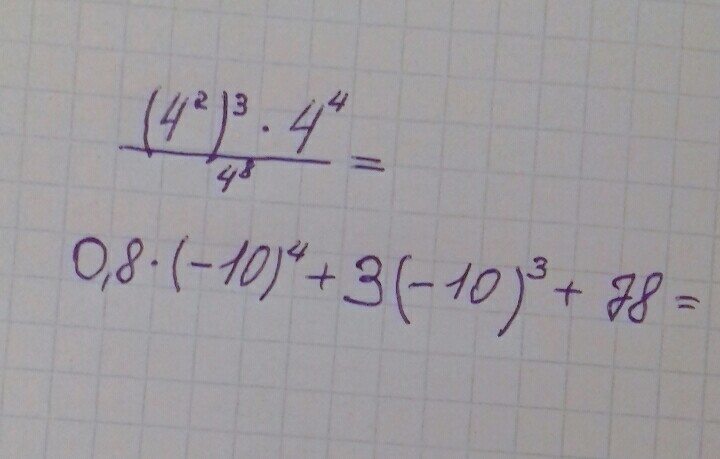 (4²)³ · 4⁴
4⁸ =
0,8 · (-10)⁴ + 3(-10)³ + 78 =